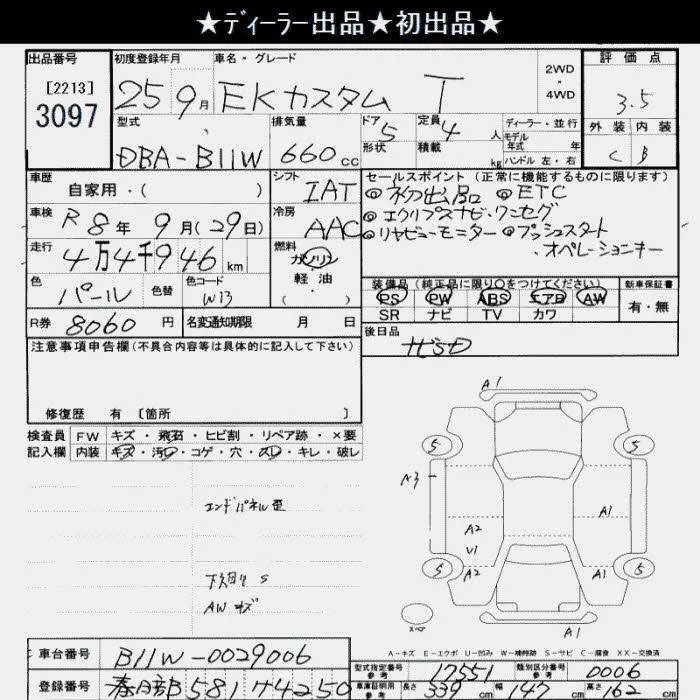 ★ディーラー出品★初出品★
出品番号 初度登録年月 車名・グレード 2WD・4WD 評価点
[2213] 3097
25 9月 EKカスタム T 3.5
型式 排気量 ドア 5 定員 4人 ディーラー・並行 外装 内装
形状 積載 kg モデル年式 年
DBA-B11W 660cc ハンドル 左・右 C B
車歴 シフト セールスポイント (正常に機能するものに限ります)
自家用・( ) IAT ◎初出品 ◎ETC
車検 R8年9月(29日) 冷房 AAC ◎エクリプスナビ・ワンセグ
走行 4万4千946km 燃料 ガソリン ◎リヤビューモニター ◎プッシュスタート
軽油 ・オペレーションキー
色 パール 色替 色コード W13 ( ) 装備品 (純正品に限り○をつけてください) 新車保証書
PS PW ABS エアB AW 有・無
R券 8060円 名変通知期限 月 日 SR ナビ TV カワ
注意事項申告欄 (不具合内容等は具体的に記入して下さい) 後日品
修復歴 有 [箇所 ]
検査員 FW キズ・飛石・ヒビ割・リペア跡・×要
記入欄 内装 キズ・汚レ・コゲ・穴・スレ・キレ・破レ
A1
S S
A3
エンドパネル歪 A1
A2
U1
S A2 A1 S
下廻り S
AWキズ
スペア
A1
A-キズ E-エクボ U-凹み W-補修跡 S-サビ C-腐食 XX-交換済
車台番号 B11W-0029006
型式指定番号 参考 17551 類別区分番号 参考 0006
登録番号 春日部 581 ケ 4250
車庫証明用 参考 長さ 339cm 幅 147cm 高さ 162cm